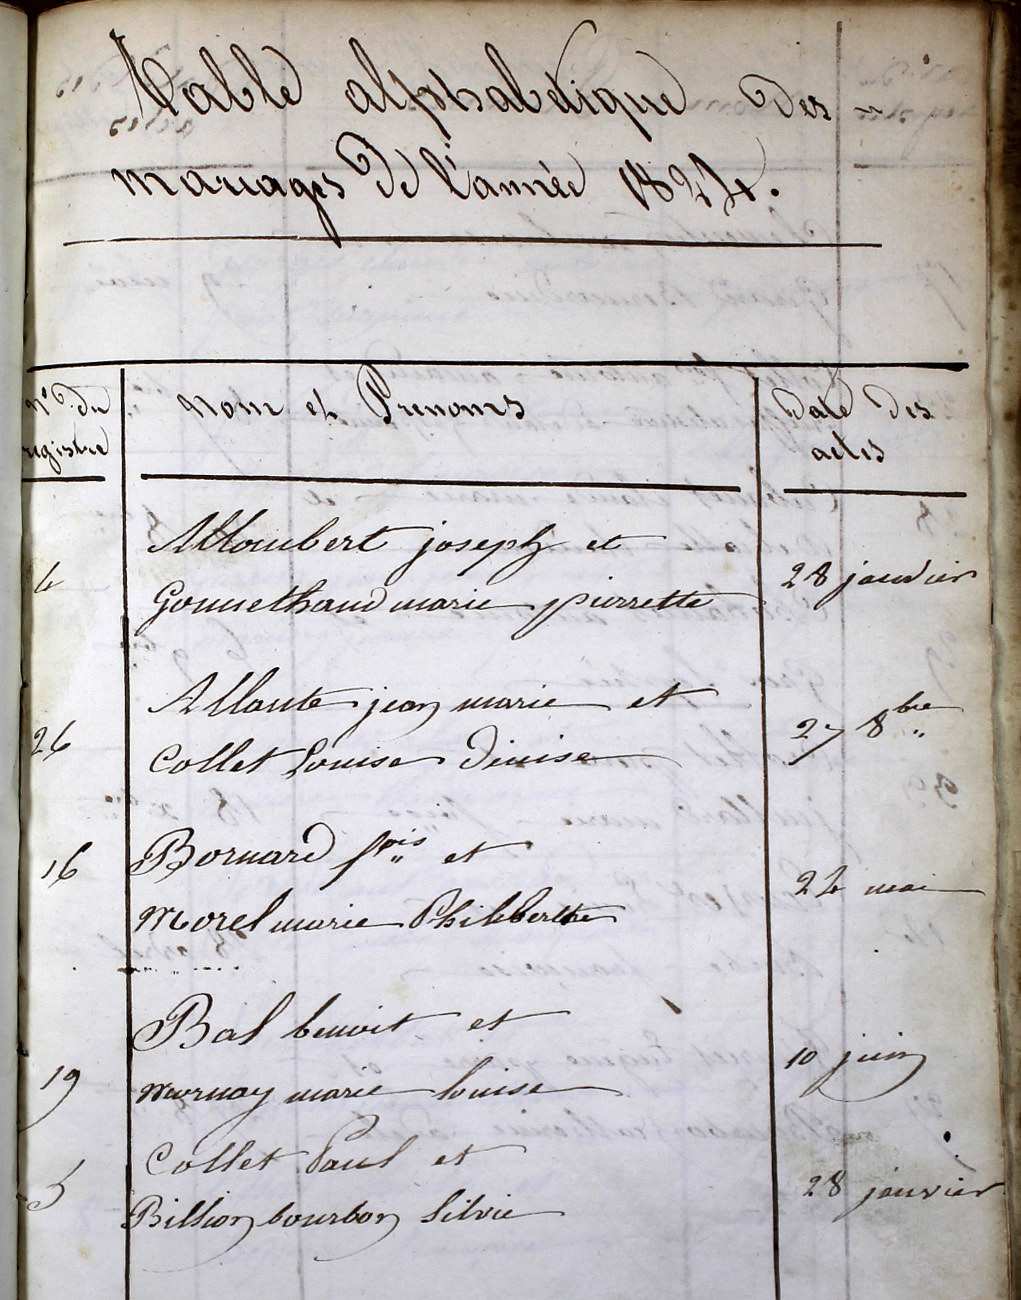 Table alphabetique des
mariages de l'année 1824.
N° du registre
nom et Prenoms
date des actes
4
Allombert joseph et
Gonnethaud marie pierrette
28 janvier
26
Allante jean marie et
Collet Louise Denise
27 8bre
16
Bornard fçois et
Morel marie Philiberthe
24 mai
19
Bal benoit et
Mornay marie louise
10 juin
5
Collet Paul et
Billion bourbon Silvie
28 janvier